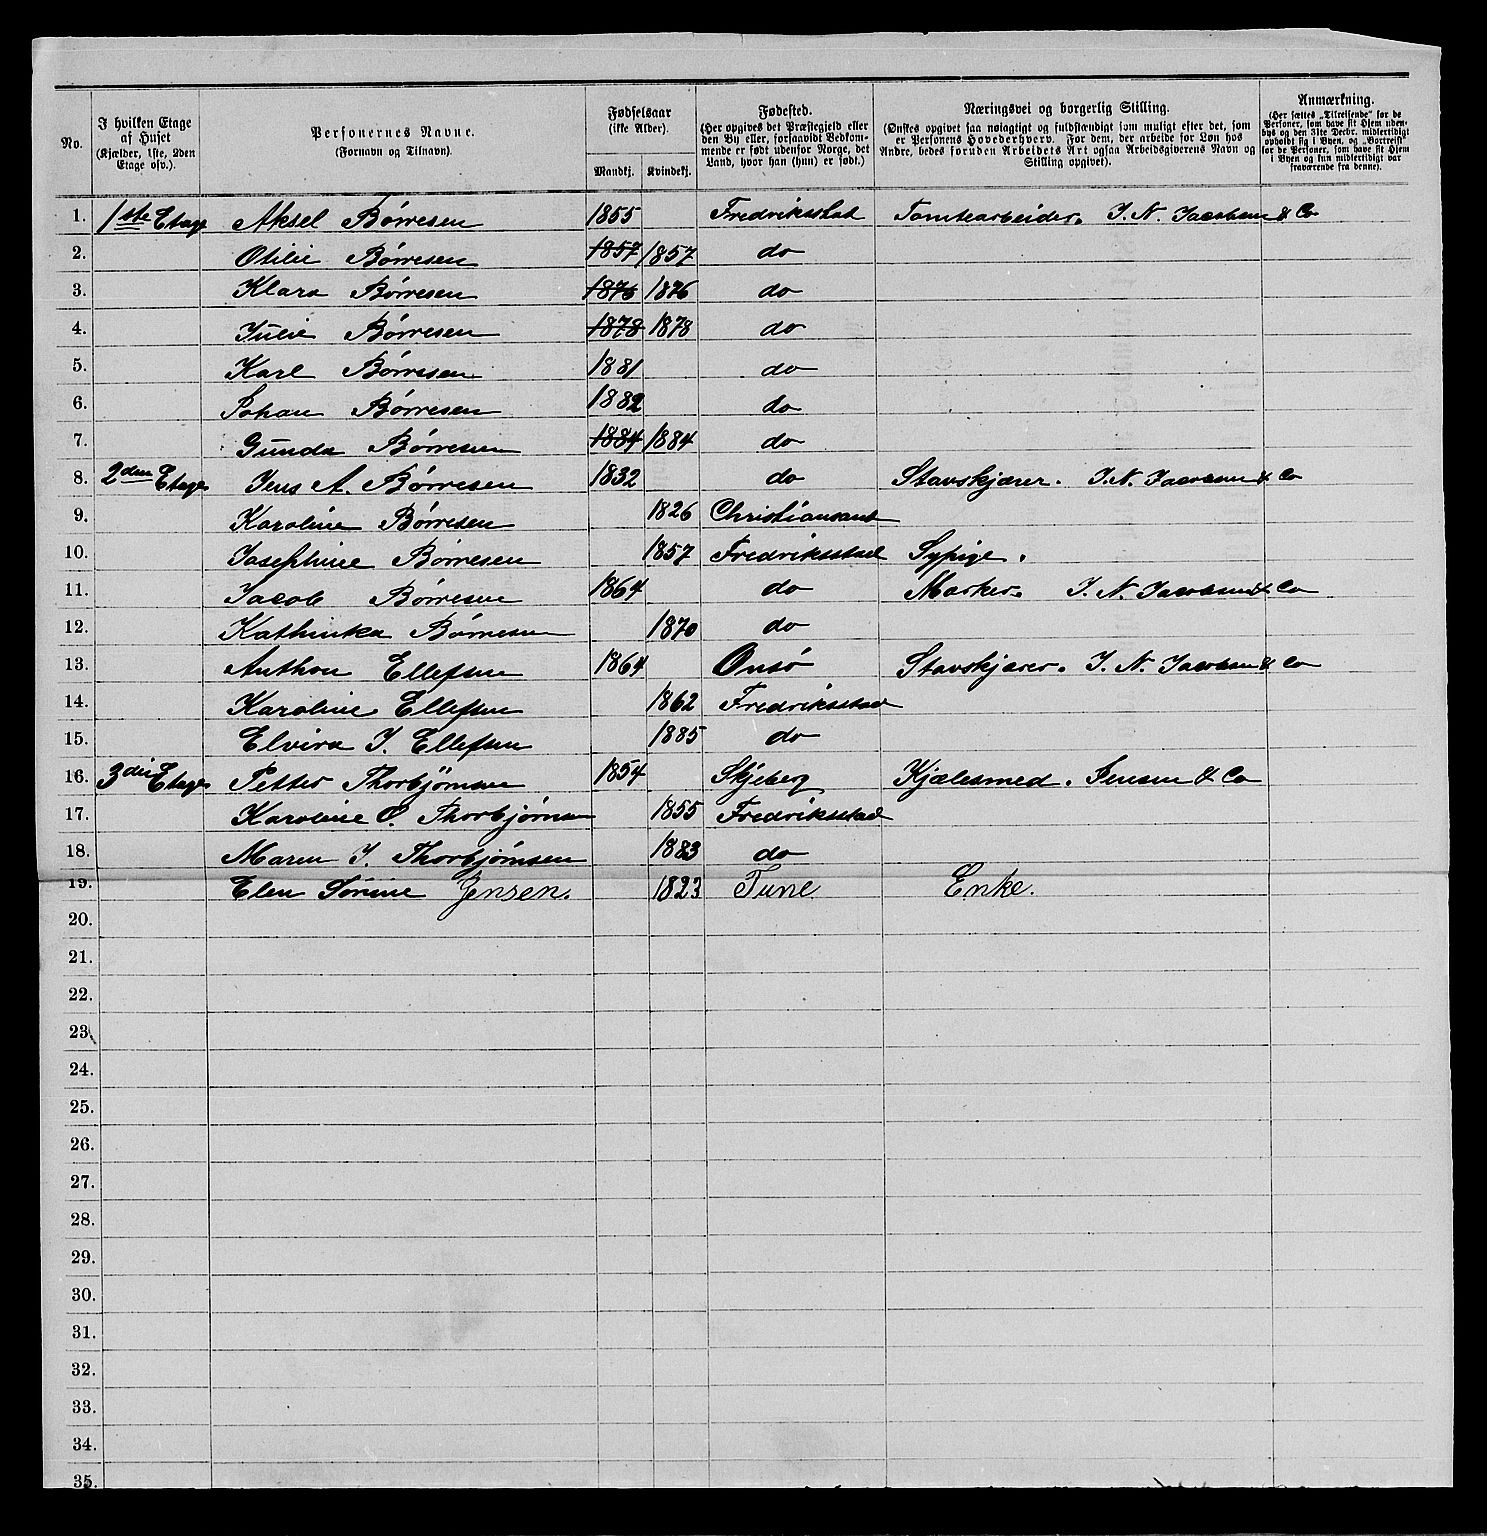 No.
I hvilken Etage af Huset (Kjælder, 1ste, 2den Etage osv.).
Personernes Navne. (Fornavn og Tilnavn).
Fødselsaar (ikke Alder).
Mandkj. Kvindekj.
Fødested. (Her opgives det Præstegjeld eller den By eller, forsaavidt Vedkommende er født udenfor Norge, det Land, hvor han (hun) er født.)
Næringsvei og borgerlig Stilling. (Ønskes opgivet saa nøiagtigt og fuldstændigt som muligt efter det, som er Personens Hovederhverv. For dem, der arbeide for Løn hos Andre, bedes foruden Arbeidets Art ogsaa Arbeidsgiverens Navn og Stilling opgivet).
Anmærkning. (Her sættes „Tilreisende“ for de Personer, som have sit Hjem udenbys og den 31te Decbr. midlertidigt opholdt sig i Byen, og „Bortreist“ for de Personer, som have sit Hjem i Byen og kun midlertidigt var fraværende fra denne).
1. 1ste Etage Aksel Børresen 1855 Fredriksstad Tomtearbeider. J. N. Jacobsen & Co
2. Otilie Børresen 1857 1857 do
3. Klara Børresen 1876 1876 do
4. Julie Børresen 1878 1878 do
5. Karl Børresen 1881 do
6. Johan Børresen 1882 do
7. Gunda Børresen 1884 1884 do
8. 2den Etage Jens A. Børresen 1832 do Stavskjærer. J. N. Jacobsen & Co
9. Karoline Børresen 1826 Christiansand
10. Josephine Børresen 1857 Fredriksstad Sypige.
11. Jacob Børresen 1864 do Marker. J. N. Jacobsen & Co
12. Kathinka Børresen 1870 do
13. Anthon Ellefsen 1864 Onsø Stavskjærer. J. N. Jacobsen & Co
14. Karoline Ellefsen 1862 Fredriksstad
15. Elvira J. Ellefsen 1885 do
16. 3die Etage Petter Thorbjørnsen 1854 Skjeberg Kjælesmed. Jensen & Co
17. Karoline O. Thorbjørnsen 1855 Fredriksstad
18. Maren J. Thorbjørnsen 1883 do
19. Elen Sørine Jensen. 1823 Tune. Enke.
20.
21.
22.
23.
24.
25.
26.
27.
28.
29.
30.
31.
32.
33.
34.
35.